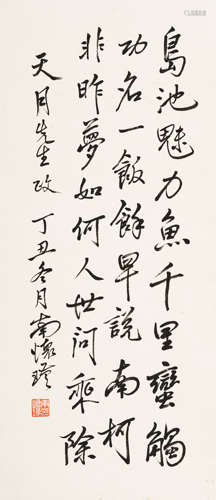 島池魅力魚千里蠻觸
功名一飯餘早說南柯
非昨夢如何人世問乘除
天月先生政 丁丑冬月南懷瑾